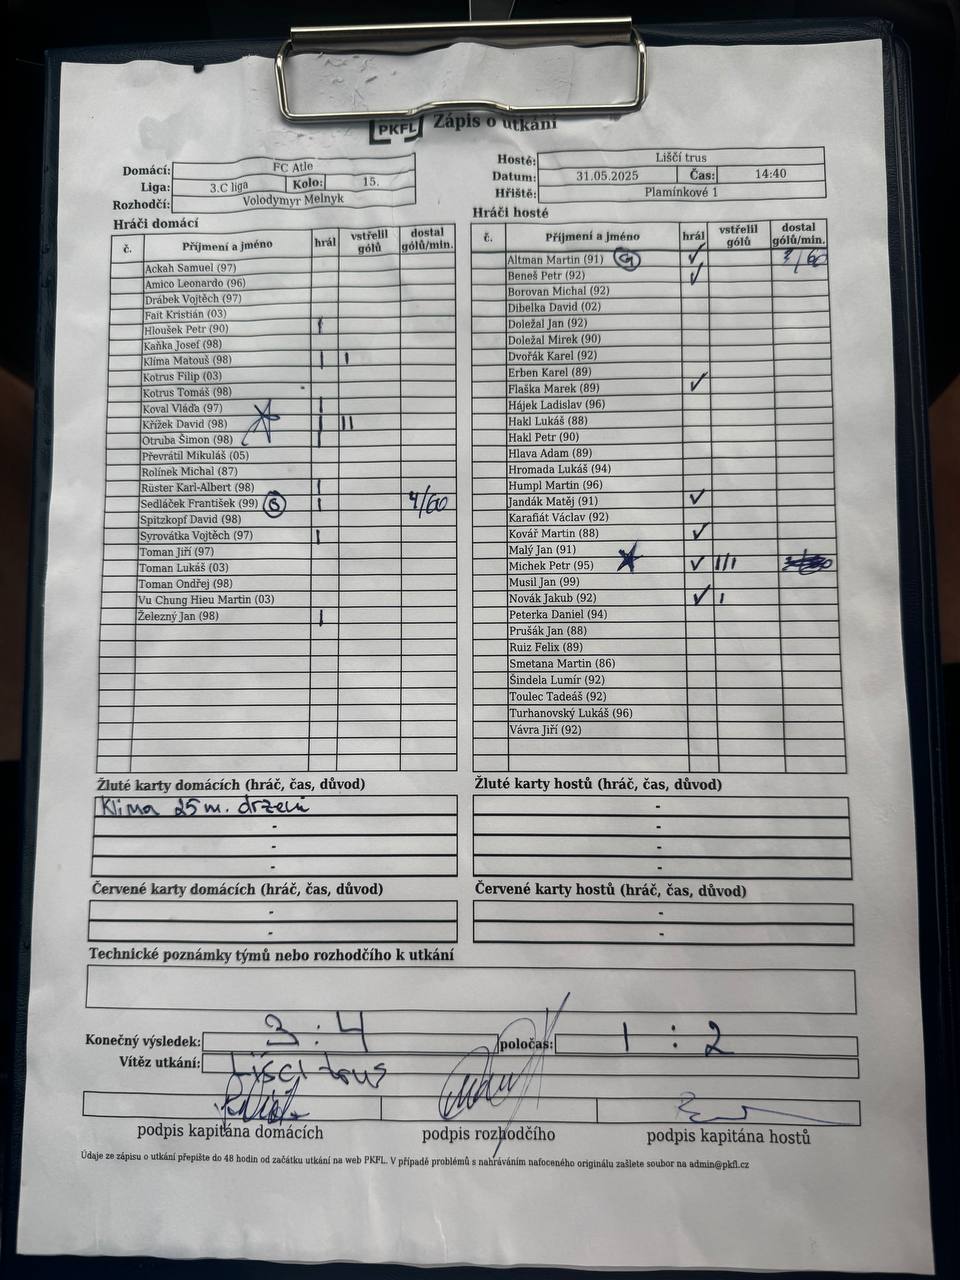 PKFL Zápis o utkání
Domácí: FC Atle
Liga: 3.C liga Kolo: 15.
Rozhodčí: Volodymyr Melnyk
Hosté: Liščí trus
Datum: 31.05.2025 Čas: 14:40
Hřiště: Plamínkové 1
Hráči domácí
č. Příjmení a jméno hrál vstřelil gólů dostal gólů/min.
Ackah Samuel (97)
Amico Leonardo (96)
Drábek Vojtěch (97)
Fait Kristián (03)
Hloušek Petr (90) I
Kaňka Josef (98)
Klíma Matouš (98) I I
Kotrus Filip (03)
Kotrus Tomáš (98)
Koval Vláďa (97) I
Křížek David (98) I II
Otruba Šimon (98) I
Převrátil Mikuláš (05)
Rolínek Michal (87)
Rüster Karl-Albert (98) I
Sedláček František (99) G I 4/60
Spitzkopf David (98)
Syrovátka Vojtěch (97) I
Toman Jiří (97)
Toman Lukáš (03)
Toman Ondřej (98)
Vu Chung Hieu Martin (03)
Železný Jan (98) I
Hráči hosté
č. Příjmení a jméno hrál vstřelil gólů dostal gólů/min.
Altman Martin (91) G ✓ 3/60
Beneš Petr (92) ✓
Borovan Michal (92)
Dibelka David (02)
Doležal Jan (92)
Doležal Mirek (90)
Dvořák Karel (92)
Erben Karel (89)
Flaška Marek (89) ✓
Hájek Ladislav (96)
Hakl Lukáš (88)
Hakl Petr (90)
Hlava Adam (89)
Hromada Lukáš (94)
Humpl Martin (96)
Jandák Matěj (91) ✓
Karafiát Václav (92)
Kovář Martin (88) ✓
Malý Jan (91)
Michek Petr (95) ✓ III
Musil Jan (99)
Novák Jakub (92) ✓ I
Peterka Daniel (94)
Prušák Jan (88)
Ruiz Felix (89)
Smetana Martin (86)
Šindela Lumír (92)
Toulec Tadeáš (92)
Turhanovský Lukáš (96)
Vávra Jiří (92)
Žluté karty domácích (hráč, čas, důvod)
Klima 25 m. drzeni
-
-
-
Žluté karty hostů (hráč, čas, důvod)
-
-
-
-
Červené karty domácích (hráč, čas, důvod)
-
-
Červené karty hostů (hráč, čas, důvod)
-
-
Technické poznámky týmů nebo rozhodčího k utkání
Konečný výsledek: 3 : 4 poločas: 1 : 2
Vítěz utkání: Liščí trus
podpis kapitána domácích podpis rozhodčího podpis kapitána hostů
Údaje ze zápisu o utkání přepište do 48 hodin od začátku utkání na web PKFL. V případě problémů s nahráváním nafoceného originálu zašlete soubor na admin@pkfl.cz